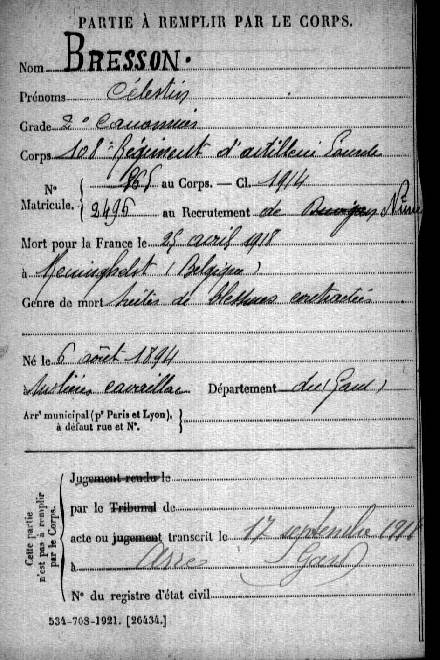 PARTIE À REMPLIR PAR LE CORPS.
Nom BRESSON.
Prénoms Célestin
Grade 2e canonnier
Corps 108e Régiment d'artillerie Lourde
N° Matricule. { 865 au Corps. — Cl. 1914
2495 au Recrutement de Nîmes
Mort pour la France le 25 avril 1918
à (Belgique)
Genre de mort suites de blessures contractées
Né le 6 août 1894
Département du (Gard)
Arrt municipal (pr Paris et Lyon), à défaut rue et N°. }
Cette partie n'est pas à remplir par le Corps.
Jugement rendu le
par le Tribunal de
acte ou jugement transcrit le 17 septembre 191
à Arre Gard
N° du registre d'état civil
534-708-1921. [26434.]